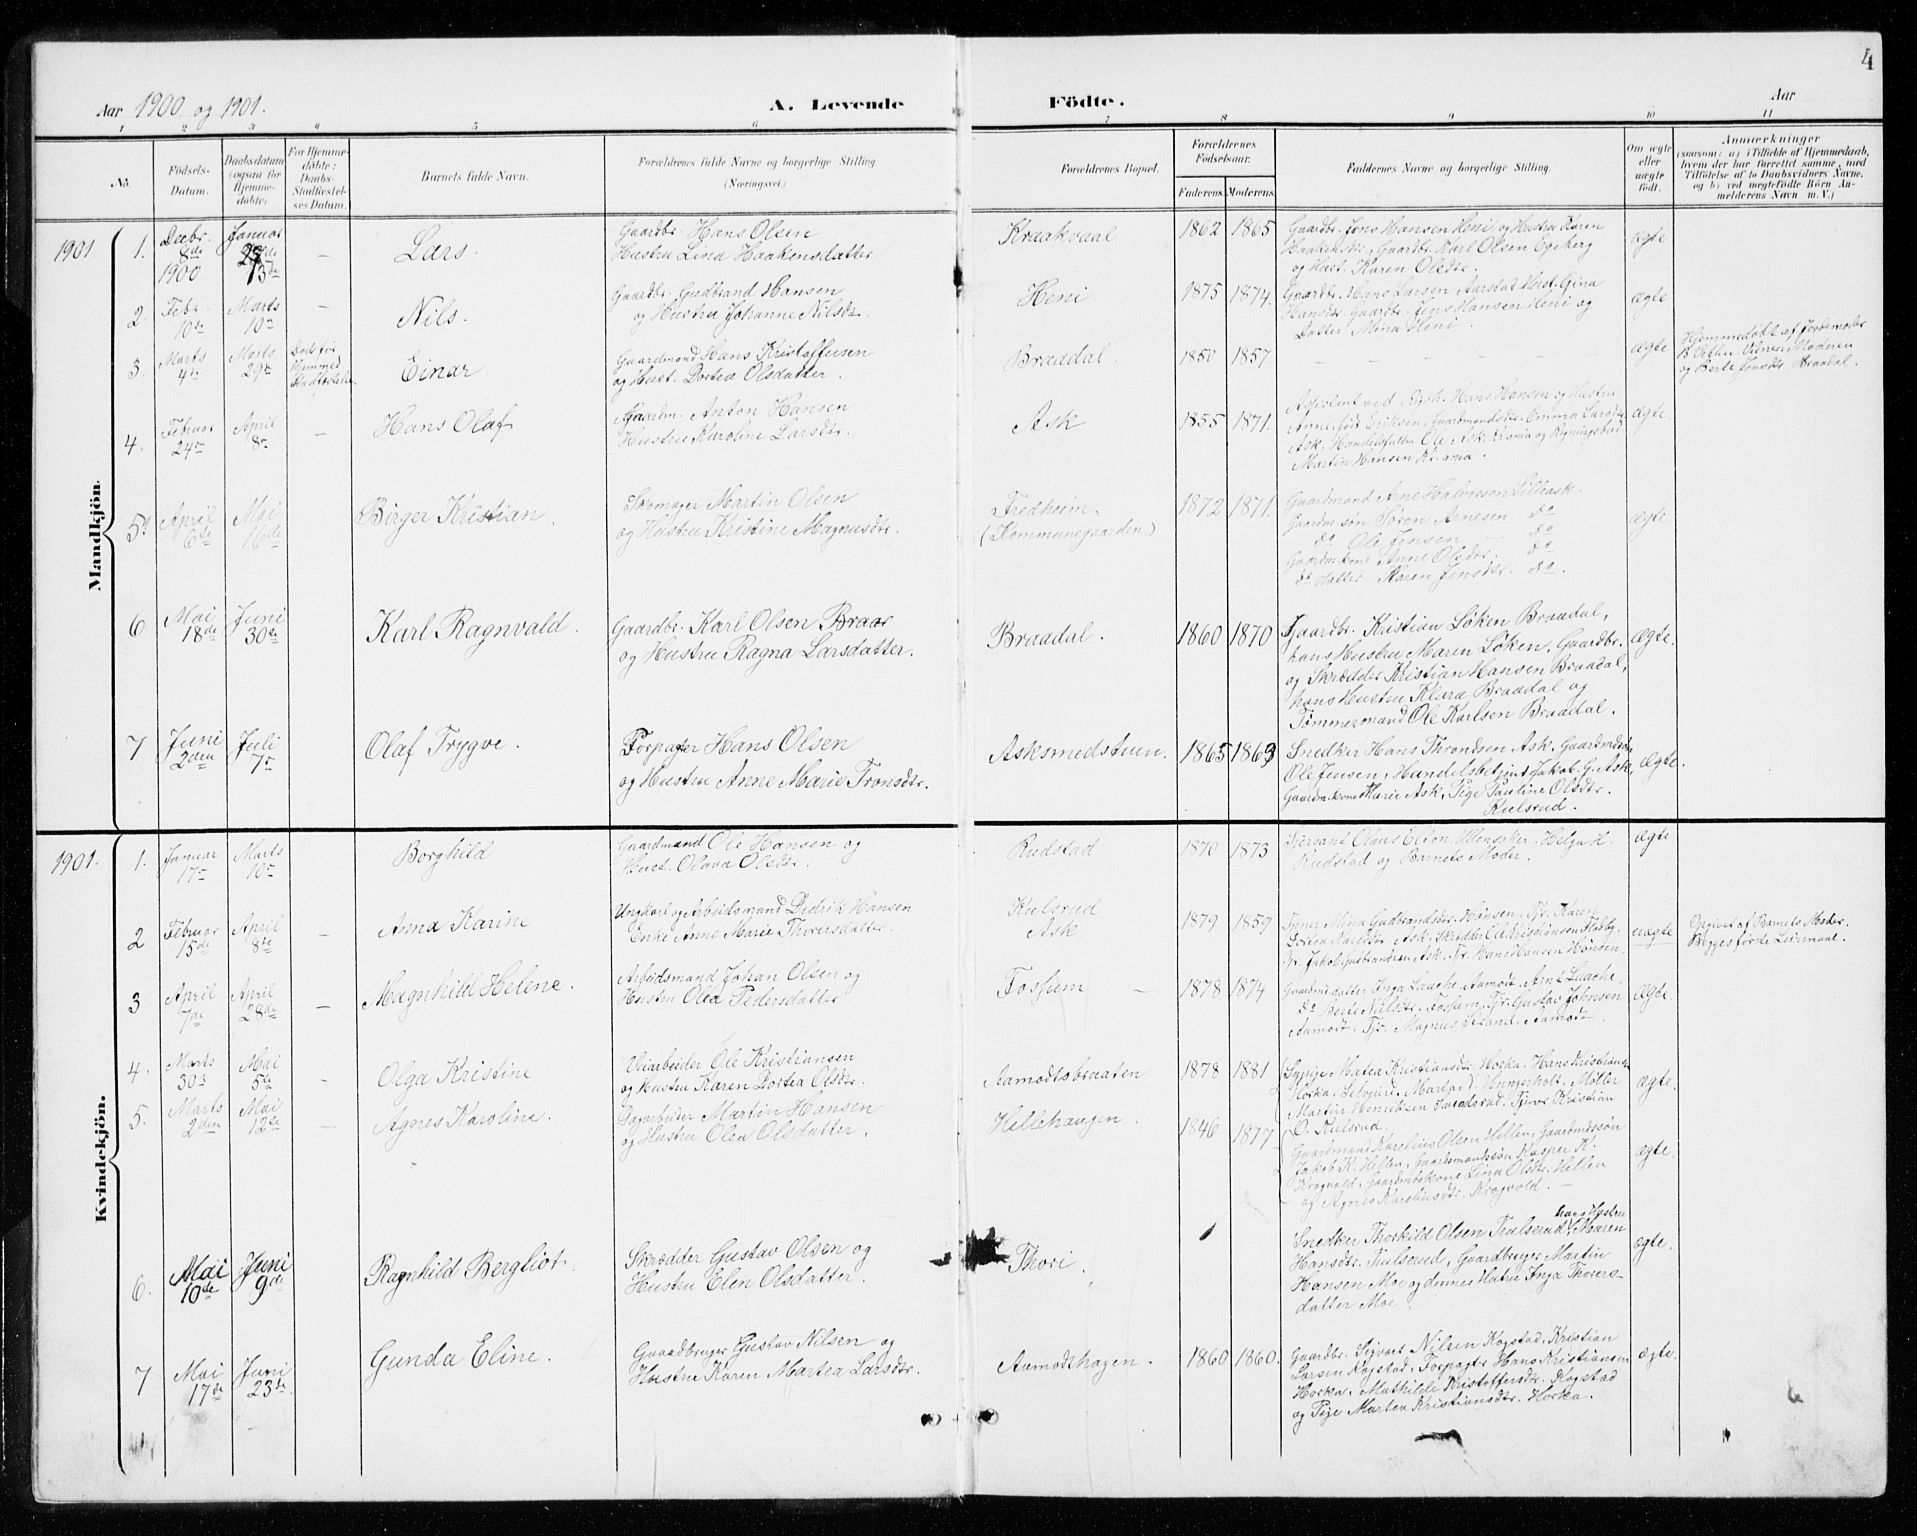 4
Aar 1900 og 1901.
A. Levende
Födte.
Aar
1 2 3 4 5 6 7 8 9 10 11
No.
Födsels-Datum.
Daabsdatum (ogsaa for Hjemmedöbte)
For Hjemmedöbte: Daabs-Stadfæstelses Datum.
Barnets fulde Navn.
Forældrenes fulde Navne og borgerlige Stilling (Næringsvei.)
Forældrenes Bopæl.
Forældrenes Födselsaar.
Faderens. Moderens.
Faddernes Navne og borgerlige Stilling.
Om ægte eller uægte födt.
Anmærkninger
(saasom: a) i Tilfælde af Hjemmedaab,
hvem der har forrettet samme, med
Tilföielse af to Daabsvidners Navne,
og b) ved uægtefödte Börn An-
melderens Navn m. V.)
Mandkjön.
1901
1. Decbr. 8de 1900 Januar 13de — Lars.
Gaardbr. Hans Olsen
Hustru Lina Haakensdatter
Kraakvaal 1862 1865
Gaardbr. Jens Hansen Heni og Hustru Karen
Haakensdtr, Gaardbr. Karl Olsen Egeberg
og Hust. Karen Olsdtr.
ægte
2. Febr. 10de Marts 10de — Nils.
Gaardbr. Gudbrand Hansen
og Hustru Johanne Nilsdr.
Heni 1875 1874.
Gaardbr. Hans Larsen Aarstad Hust. Gina
Hansdtr. Gaardbr. Jens Hansen Heni og
Datter Mina Heni.
ægte
3. Marts 4de Marts 29de Einar
Gaardmand Hans Kristoffersen
og Hust. Dortea Olsdatter.
Braadal 1850 1857.
ægte
Hjemmedöbt af Jordemoder
Moderen
og Berte Jensdtr. Braadal.
4. Februar 24de April 8de — Hans Olaf
Gaardm. Anton Hansen
Hustru Karoline Larsdtr.
Ask 1855 1871.
Hans Hansen og Hustru
Anne, född Eriksen, Gaardmandsdtr. Emma Larsdtr
Ask. Ole Ask Krania og
Martin Hansen Kr.ania.
ægte
5. April 6de Mai 16de Birger Kristian.
Skomager Martin Olsen
og Hustru Kristine Magnusdtr.
Fredheim.
(Kommunegaarden)
1872 1871.
Gaardmand Arne Halvorsen Lilleask.
Gaardm. sön Sören Arnesen do
do Ole Jensen — do
Gaardm. kone Anne Olsdtr. do
do datter Maren Jensdtr. do.
ægte
6 Mai 18de Juni 30de Karl Ragnvald.
Gaardbr. Karl Olsen Braar
og Hustru Ragna Larsdatter.
Braadal. 1860 1870
Gaardbr. Kristian Löken Braadal,
hans Hustru Maren Löken, Gaardbr.
og Skrædder Kristian Hansen Braadal,
hans Hustru Klara Braadal og
Tömmermand Ole Karlsen Braadal.
ægte.
7 Juni 2den Juli 7de Olaf Trygve.
Forpagter Hans Olsen
og Hustru Anne Marie Tronsdtr.
Asksmedstuen. 1865 1863
Snedker Hans Throndsen Ask. Gaardmdsön
Ole Jensen, Handelsbetjent Jakob. G. Ask,
Gaardm. kone Marie Ask, Pige Pauline Olsdtr.
Kulsrud.
ægte.
Kvindekjön.
1901.
1. Januar 17de Marts 10de Borghild
Gaardmand Ole Hansen og
Hust. Olava Olsdtr.
Rudstad 1870 1873
Sersant Olaus Elton Ullensaker. Helga H.
Rudstad og Barnets Moder.
ægte
2 Februar 15de April 8de — Anna Karine
Ungkarl og Arbeidsmand Didrik Hansen
Enke Anne Marie Thorersdatter.
Kulsrud
Ask
1879 1859
Mina Gudbrandsdtr. Hönsen, Karen
Ask, Skrædder Ole Kristiansen
Tjr. Jakob Gudbrandsen Ask. Tjr. Hans Hansen Hönsen.
uægte
Opgivet af Barnets Moder.
Begges förste Leiermaal.
3 April 7de April 28de — Magnhild Helene.
Arbeidsmand Johan Olsen og
Hustru Olea Pedersdatter
Fossum — 1878 1874
Gaardmdsdatter Inga Laache Aamodt. Arnt Laache,
do Berte Nilsdtr. Fossum, Tjr. Gustav Johnsen
Aamodt. Tjr. Magnus Strand, Aamodt.
ægte.
4. Marts 30te Mai 5de — Olga Kristine
Veiarbeider Ole Kristiansen
og Hustru Karen Dortea Olsdtr.
Aamodtsbraaten 1878 1881
Sypige Matea Kristiansdtr Horka. Hans Kristiansen
Horka, Selveier Hungerholt. Möller
Martin Henriksen Tjener Kristian
O. Kulsrud.
ægte.
5. Marts 2den Mai 12te — Agnes Karoline.
Dagarbeider Martin Hansen
og Hustru Olea Olsdatter.
Hellehaugen. 1846 1877
Gaardmand Karelius Olsen Hellen, Gaardmdssön
Jakob K. Hellen, Gaardsmandssön Kasper K.
Kragvold, Gaardmdskone Lina Olsdtr. Hellen
og Agnes Kareliusdtr. Kragvold. —
ægte.
6. Mai 10de Juni 9de Ragnhild Bergliot.
Skrædder Gustav Olsen og
Hustru Elen Olsdatter.
Thori.
Snedker Thorkild Olsen Kulsrud, hans Hustru Maren
Hansdtr. Kulsrud, Gaardbruger Martin
Hansen Moe og dennes Hustru Inga Thorers-
datter Moe.
ægte.
7 Mai 17de Juni 23de Gunda Eline.
Gaardbruger Gustav Nilsen og
Hustru Karen Martea Larsdtr.
Aamodshagen. 1860 1860.
Gaardbr. Sigvart Nilsen Kogstad, Kristian
Larsen Kogstad, Forpagter Hans Kristiansen
Horka. Mathilde Kristoffersdtr. Kogstad
og Pige Martea Kristiansdtr. Horka.
ægte.